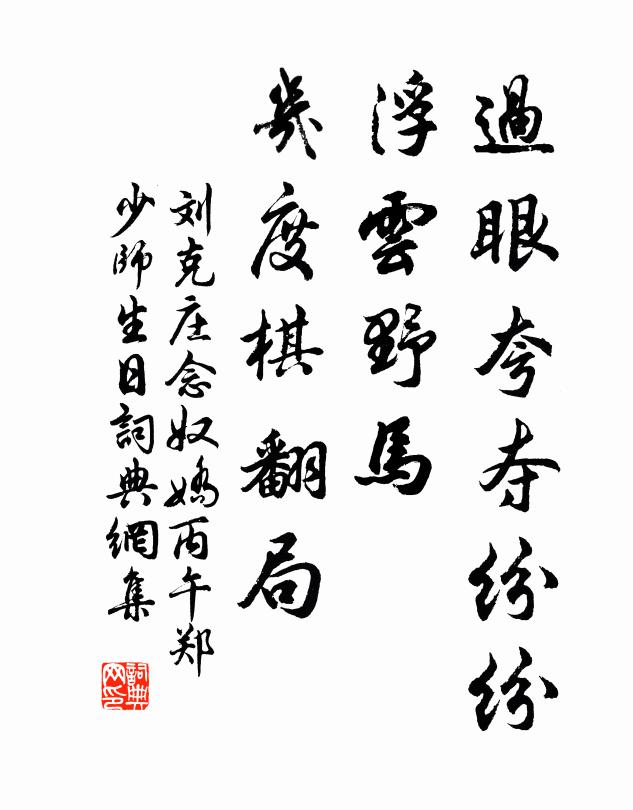 過眼夸夺纷纷
浮雲野馬
幾度棋翻局
刘克庄念奴嬌丙午郑
少師生日詞典網集
詞典
网印